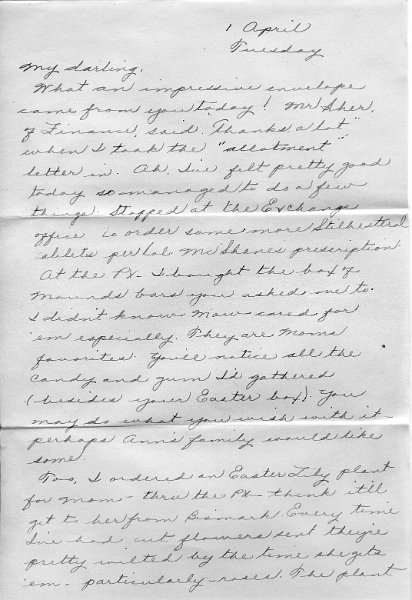 1 April
Tuesday
My darling,
What an impressive envelope
came from you today! Mr
of Finance, said "Thanks a lot"
when I took the "allotment"
letter in. Ah, I've felt pretty good
today so managed to do a few
things. Stopped at the Exchange
office to order some more Stilbestrol
tablets per Col. McShane's prescription
At the PX - I bought the box of
Mounds bars you asked me to.
I didn't know Maw cared for
'em especially. They are Moms
favorites. You'll notice all the
candy and gum I'd gathered
(besides your Easter box). You
may do what you wish with it -
perhaps Ann's family would like
some.
Too, I ordered an Easter Lily plant
for Mom - thru the PX - think it'll
get to her from Bismark. Every time
I've had cut flowers sent they're
pretty wilted by the time she gets
'em - particularly - roses. The plant